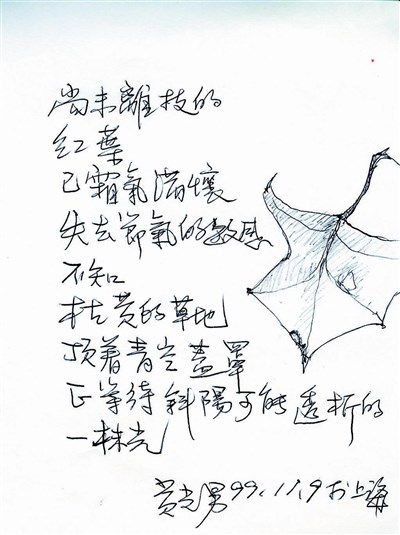 尚未離枝的
紅葉
已霜氣滿懷
失去節氣的敏感
不知
枯黃的草地
頂着青空蓋罩
正等待斜陽可能透析的
一株光
黃光男99.11.9於上海